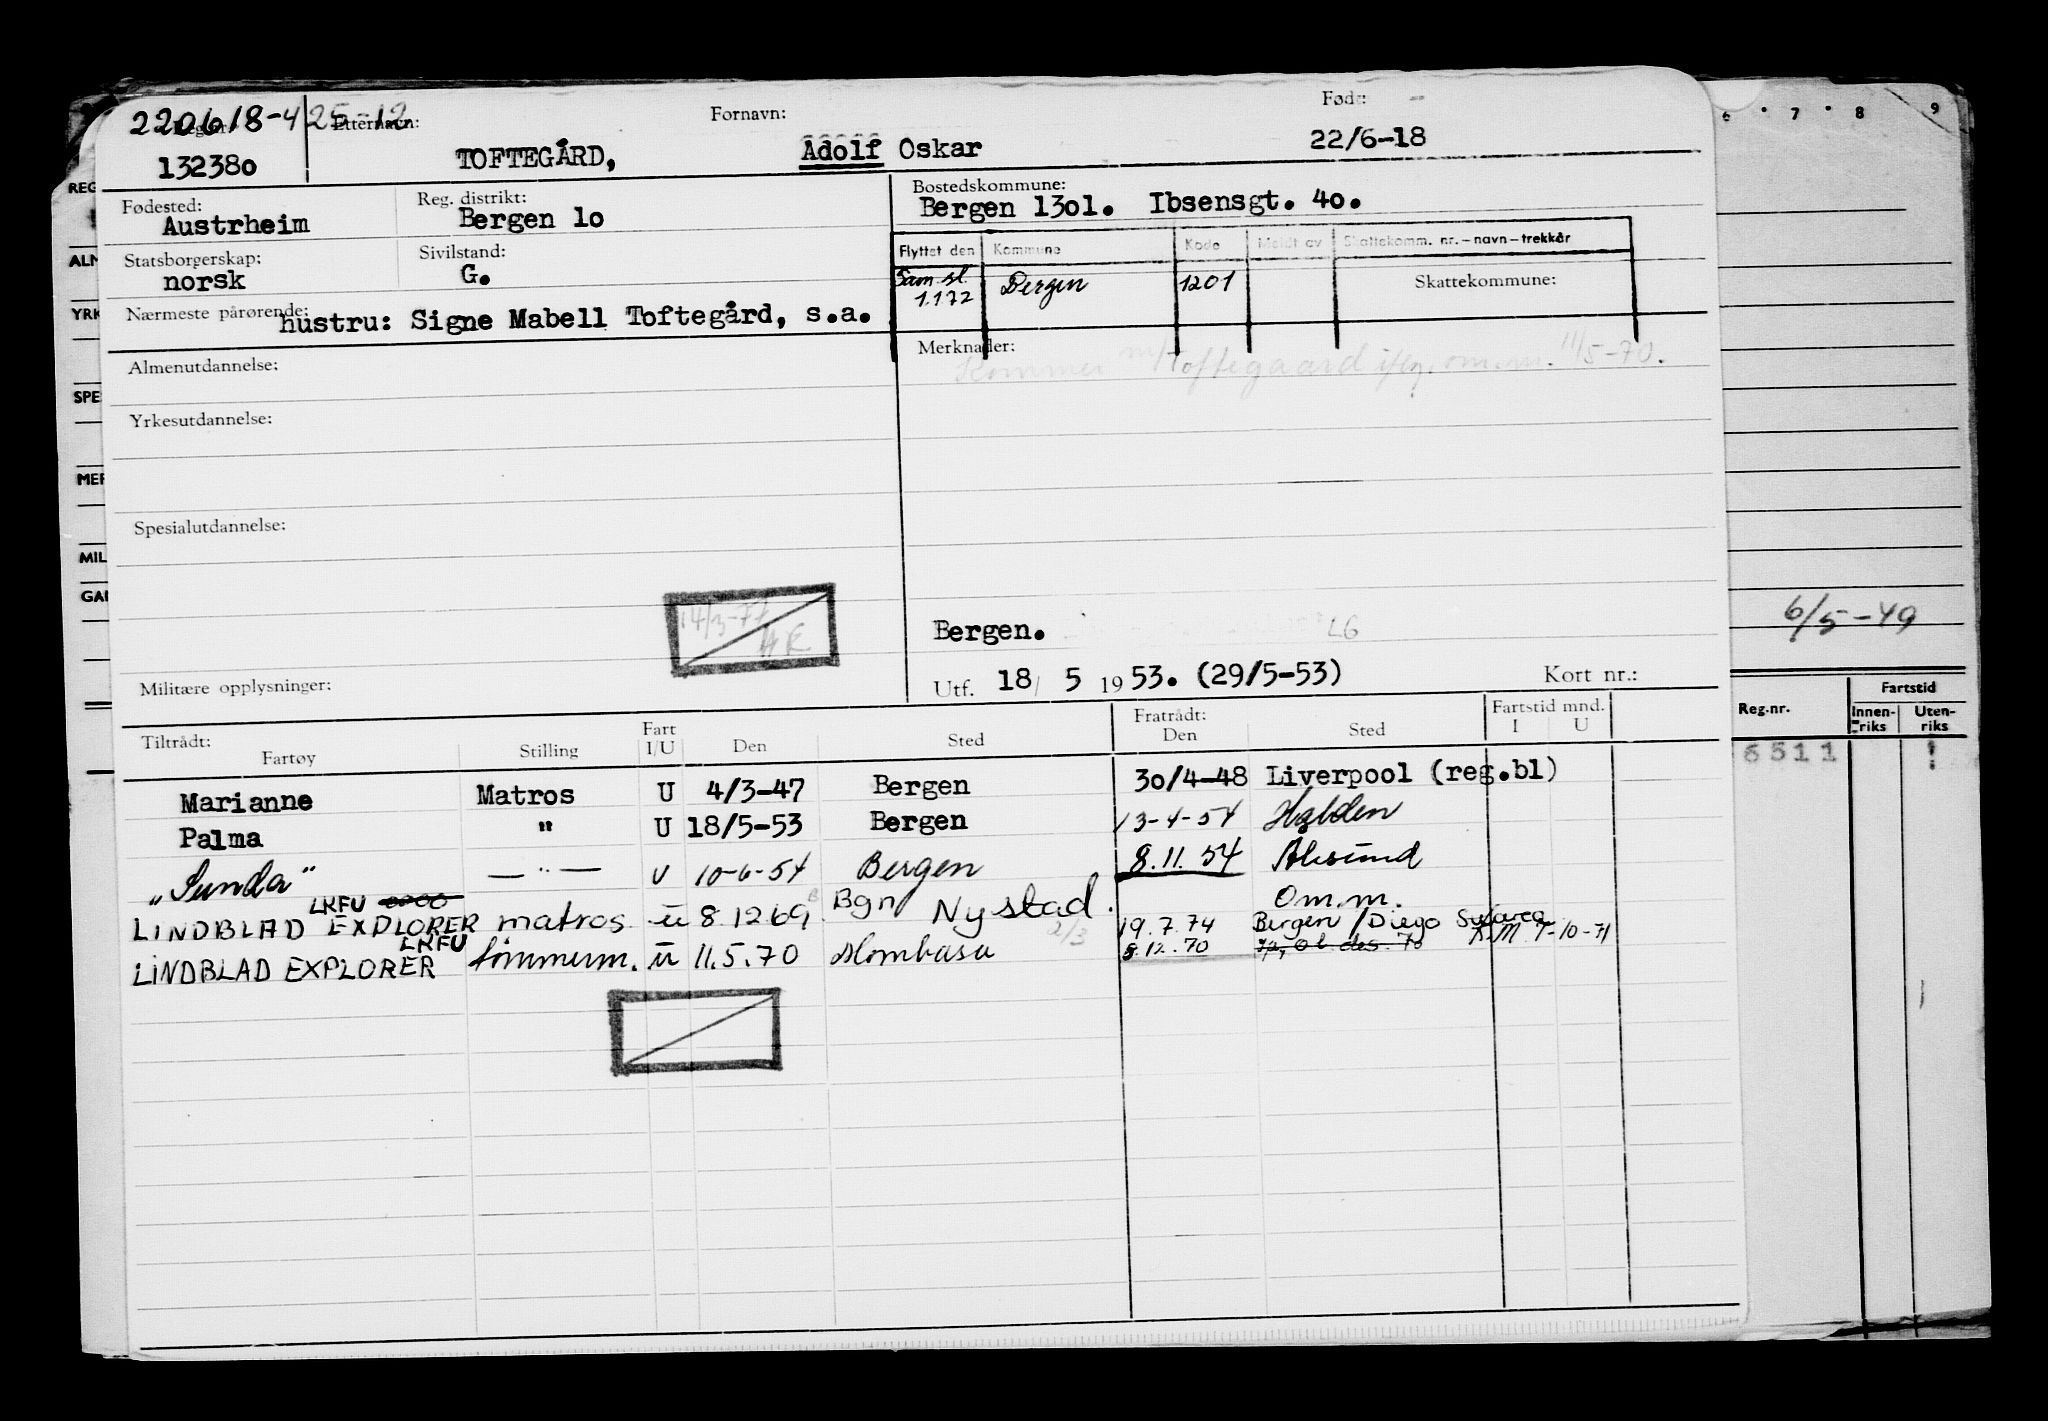 220618-425-12
Etternavn: Fornavn: Født:
132380 TOFTEGÅRD, Adolf Oskar 22/6-18
Fødested: Reg. distrikt: Bostedskommune:
Austrheim Bergen 1o Bergen 13o1. Ibsensgt. 4o.
Statsborgerskap: Sivilstand: Flyttet den Kommune Kode Meldt av Skattekomm. nr.-navn-trekkår
norsk G. Sam. sl. 1.1.72 Bergen 1201 Skattekommune:
Nærmeste pårørende: hustru: Signe Mabell Toftegård, s.a.
Almenutdannelse: Merknader:
Kommer m/Toftegaard iflg. om.m. 11/5-70.
Yrkesutdannelse:
Spesialutdannelse:
14/3-77
HK
Bergen. LG
Militære opplysninger: Utf. 18/ 5 1953. (29/5-53) Kort nr.:
Tiltrådt: Fart Fratrådt: Fartstid mnd.
Fartøy Stilling I/U Den Sted Den Sted I U
Marianne Matros U 4/3-47 Bergen 30/4-48 Liverpool (reg.bl)
Palma " U 18/5-53 Bergen 13-4-54 Halden
"Sunda" — " — U 10-6-54 Bergen 8.11.54 Ålesund
LKFU Om.m.
LINDBLAD EXPLORER matros u 8.12.69 Bgn Nystad. 2/3 19.7.74 Bergen / Diego
LKFU
LINDBLAD EXPLORER tømmerm. u 11.5.70 Mombasa 8.12.70 7-10-71
REG
ALM
YRK
SPE
MER
MIL
GAI
6 7 8 9
6/5-49
Reg.nr. Fartstid
Innen-riks Uten-riks
6511